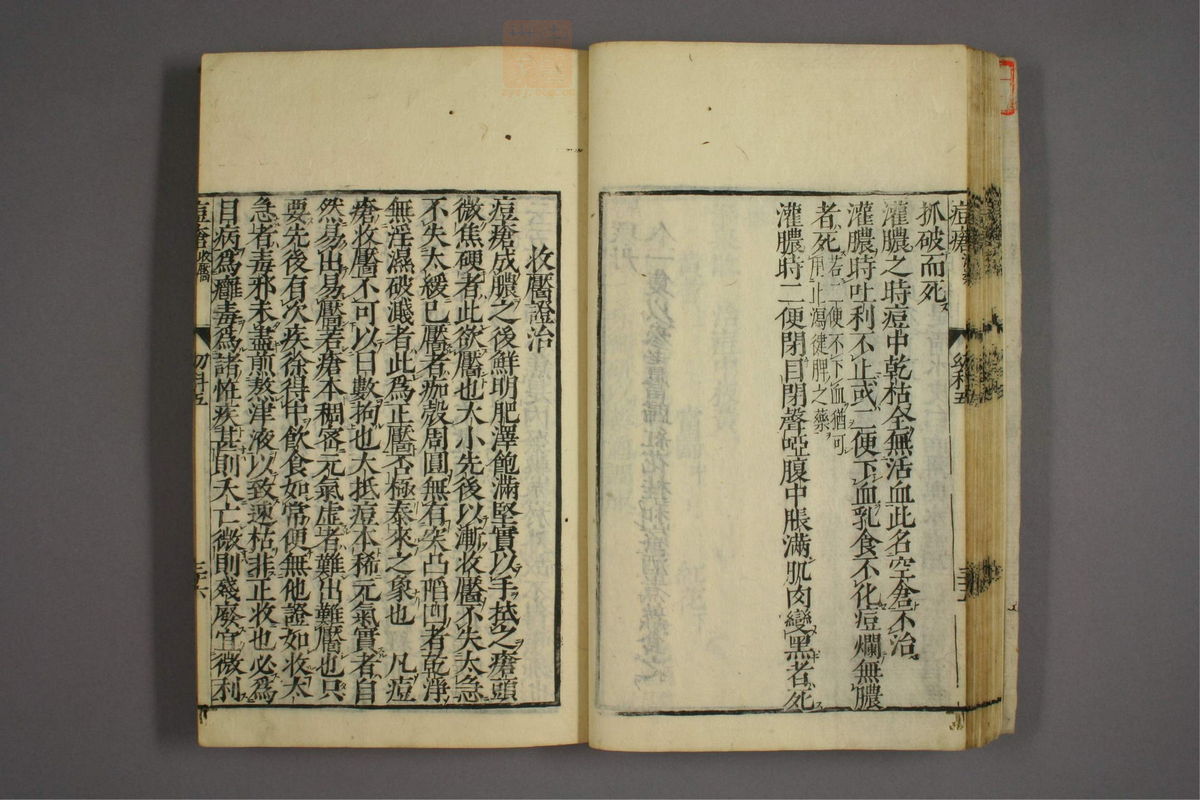 抓破而死
灌膿之時痘中乾枯全無活血此名空倉不治
灌膿時吐利不止或二便下血乳食不化痘爛無膿
者死若二便不下血猶可用止瀉健脾之藥
灌膿時二便閉目閉聲啞腹中脹滿肌肉變黑者死
收靨證治
痘瘡成膿之後鮮明肥澤飽滿堅實以手拭之瘡頭
微焦硬者此欲靨也大小先後以漸收靨不失太急
不失太緩已靨者痂殼周圓無有突凸陷凹者乾淨
無淫濕破濺者此為正靨否極泰來之象也 凡痘
瘡收靨不可以日數拘也大抵痘本稀元氣實者自
然易出易靨若瘡本稠密元氣虛者難出難靨也只
要先後有次疾徐得中飲食如常便無他證如收太
急者毒邪未盡煎熬津液以致速枯非正收也必為
目病為癰毒為諸怪疾甚則夭亡微則殘廢宜微利
痘瘡 收靨
幼科五
三十六